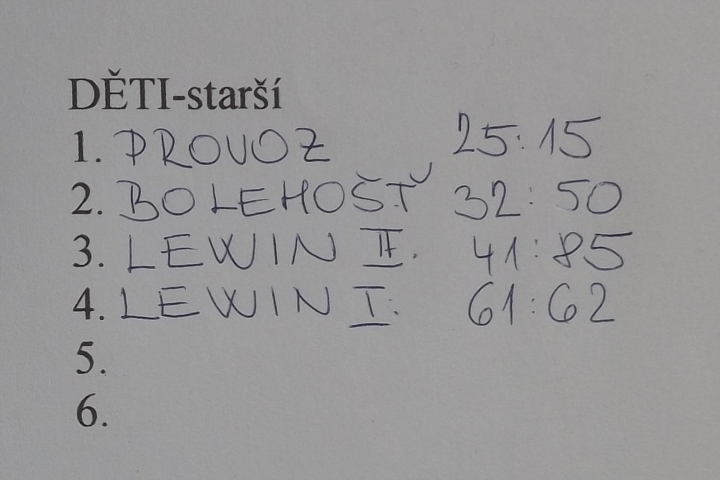 DĚTI-starší
1. PROVOZ 25:15
2. BOLEHOŠŤ 32:50
3. LEWIN II. 41:85
4. LEWIN I. 61:62
5.
6.